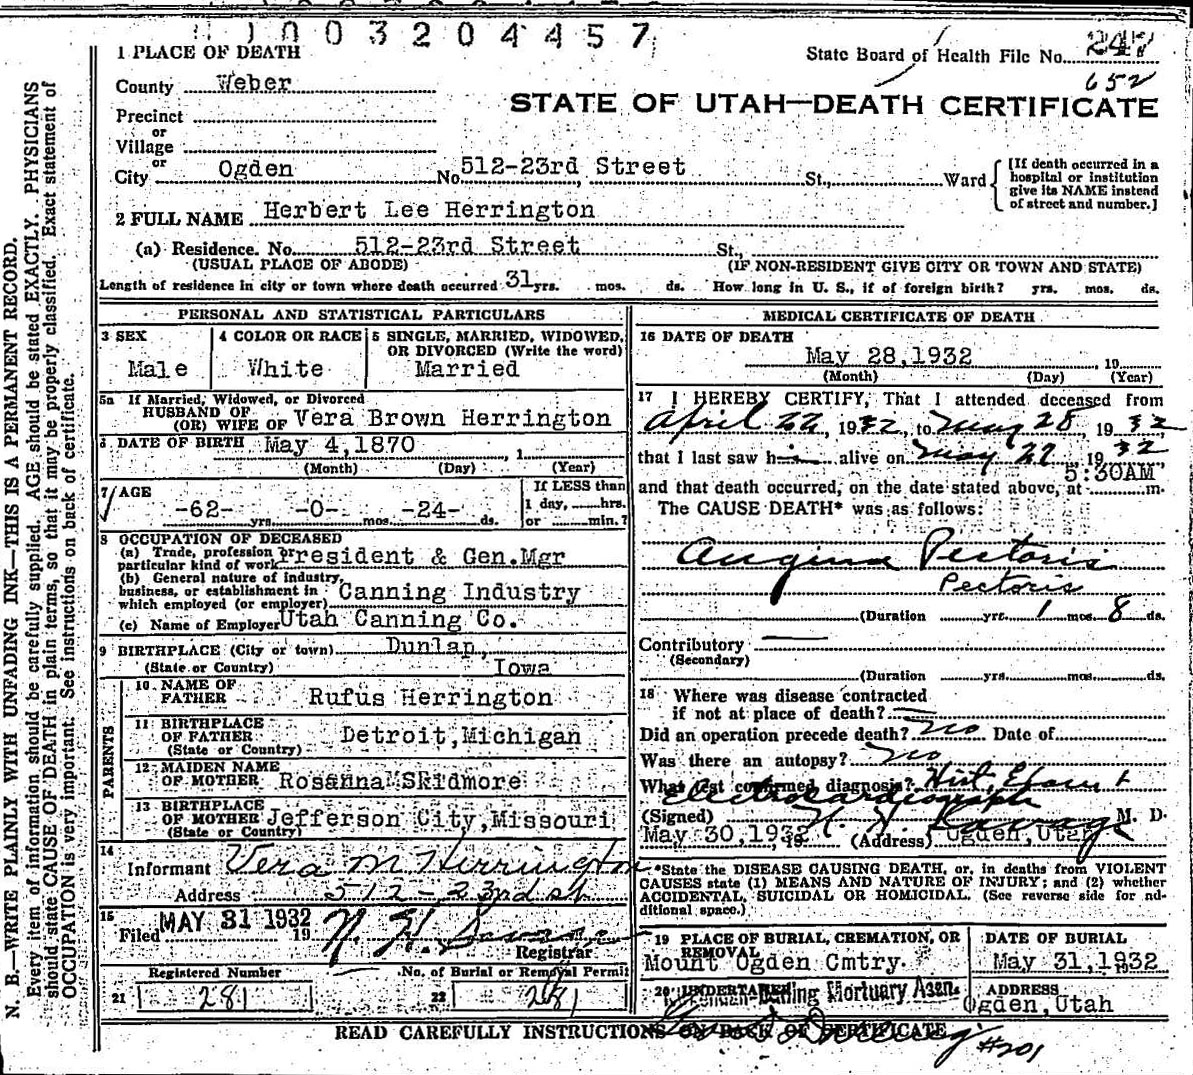 1003204457
1 PLACE OF DEATH
State Board of Health File No. 247
652
County Weber
STATE OF UTAH—DEATH CERTIFICATE
Precinct
or
Village
or
City Ogden No. 512-23rd Street St., Ward
[If death occurred in a
hospital or institution
give its NAME instead
of street and number.]
2 FULL NAME Herbert Lee Herrington
(a) Residence. No. 512-23rd Street St.,
(USUAL PLACE OF ABODE) (IF NON-RESIDENT GIVE CITY OR TOWN AND STATE)
Length of residence in city or town where death occurred 31 yrs. mos. ds. How long in U. S., if of foreign birth? yrs. mos. ds.
PERSONAL AND STATISTICAL PARTICULARS
3 SEX
Male
4 COLOR OR RACE
White
5 SINGLE, MARRIED, WIDOWED,
OR DIVORCED (Write the word)
Married
5a If Married, Widowed, or Divorced
HUSBAND OF
(OR) WIFE OF Vera Brown Herrington
6 DATE OF BIRTH May 4,1870 , 1
(Month) (Day) (Year)
7 AGE
-62- yrs. -0- mos. -24- ds.
If LESS than
1 day, hrs.
or min.?
8 OCCUPATION OF DECEASED
(a) Trade, profession or
particular kind of work President & Gen.Mgr
(b) General nature of industry,
business, or establishment in
which employed (or employer) Canning Industry
(c) Name of Employer Utah Canning Co.
9 BIRTHPLACE (City or town) Dunlap,
(State or Country) Iowa
PARENTS
10 NAME OF
FATHER Rufus Herrington
11 BIRTHPLACE
OF FATHER
(State or Country) Detroit,Michigan
12 MAIDEN NAME
OF MOTHER Rosanna Skidmore
13 BIRTHPLACE
OF MOTHER
(State or Country) Jefferson City,Missouri
14
Informant Vera M Herrington
Address 512-23rd st
15
Filed MAY 31 1932 19
Registrar
Registered Number
21 281
No. of Burial or Removal Permit
22 281
MEDICAL CERTIFICATE OF DEATH
16 DATE OF DEATH
May 28,1932 , 19
(Month) (Day) (Year)
17 I HEREBY CERTIFY, That I attended deceased from
April 22, 1932, to May 28, 1932,
that I last saw h alive on May 27 1932
5:30AM
and that death occurred, on the date stated above, at m.
The CAUSE DEATH* was as follows:
Angina Pectoris
Pectoris
(Duration yrs. 1 mos. 8 ds.
Contributory
(Secondary)
(Duration yrs. mos. ds.
18 Where was disease contracted
if not at place of death?
Did an operation precede death? No Date of
Was there an autopsy? No
What test confirmed diagnosis? Hist, Exam +
electrocardiograph
(Signed) M. D.
May 30,1932 19 (Address) Ogden,Utah
*State the DISEASE CAUSING DEATH, or, in deaths from VIOLENT
CAUSES state (1) MEANS AND NATURE OF INJURY; and (2) whether
ACCIDENTAL, SUICIDAL OR HOMICIDAL. (See reverse side for ad-
ditional space.)
19 PLACE OF BURIAL, CREMATION, OR
REMOVAL
Mount Ogden Cmtry.
DATE OF BURIAL
May 31,1932
20 UNDERTAKER Mortuary Assn.
ADDRESS
Ogden,Utah
READ CAREFULLY INSTRUCTIONS ON BACK OF CERTIFICATE
#201
N. B.—WRITE PLAINLY WITH UNFADING INK—THIS IS A PERMANENT RECORD.
Every item of information should be carefully supplied. AGE should be stated EXACTLY. PHYSICIANS
should state CAUSE OF DEATH in plain terms, so that it may be properly classified. Exact statement of
OCCUPATION is very important. See instructions on back of certificate.